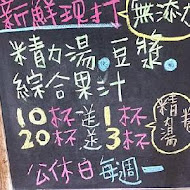 新鮮現打 無添
精力湯.豆漿
綜合果汁
10杯送1杯
20杯送3杯
精力湯
公休日每週一